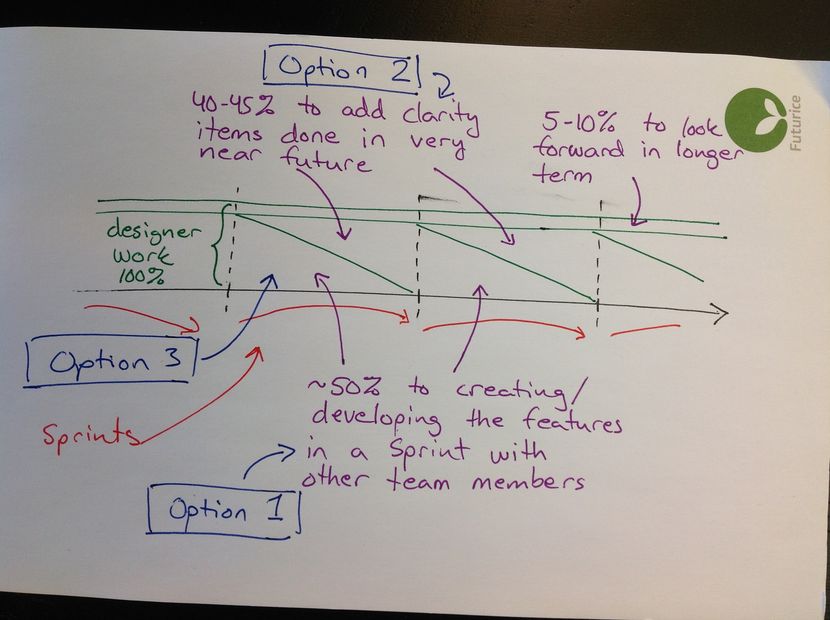 Option 2
40-45% to add clarity
items done in very
near future
5-10% to look
forward in longer
term
Futurice
designer
work
100%
Option 3
Sprints
~50% to creating/
developing the features
in a Sprint with
other team members
Option 1